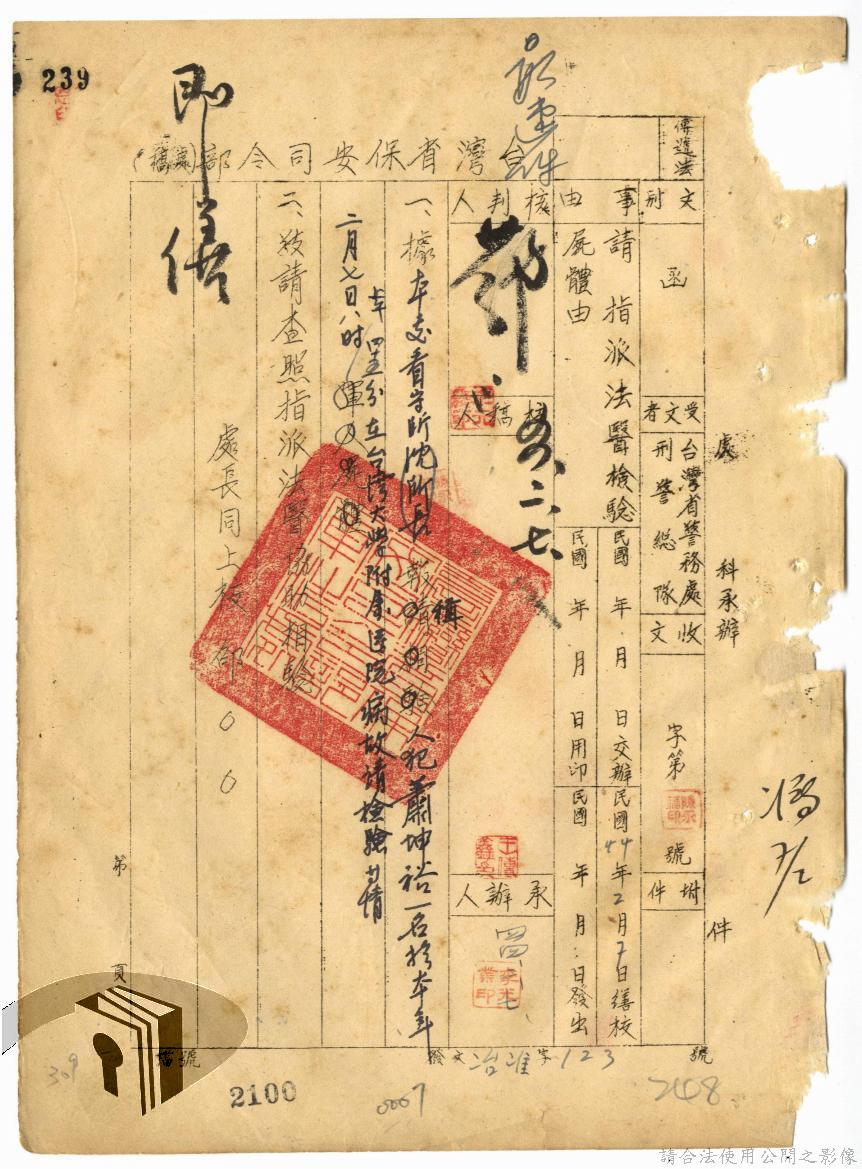 239
最速件
傳遞法
台灣省保安司令部(稿)
文別
函
受文者
台灣省警務處刑警總隊
收文
字第
號
附件
事由
請指派法醫檢驗屍體由
核判人
核稿人
承辦人
民國 年 月 日交辦
民國44年2月7日繕校
民國 年 月 日用印
民國 年 月 日發出
處
科承辦
件
一、據本處看守所沈所長報稱人犯蕭坤裕一名於本年
二月七日八時卅四分在台灣大學附屬医院病故請檢驗等情
二、敬請查照指派法醫協助相驗
處長同上校 部〇〇
即繕
五、二、七
第
頁
檔號
發文治准字123號
309
2100
0007
248
請合法使用公開之影像